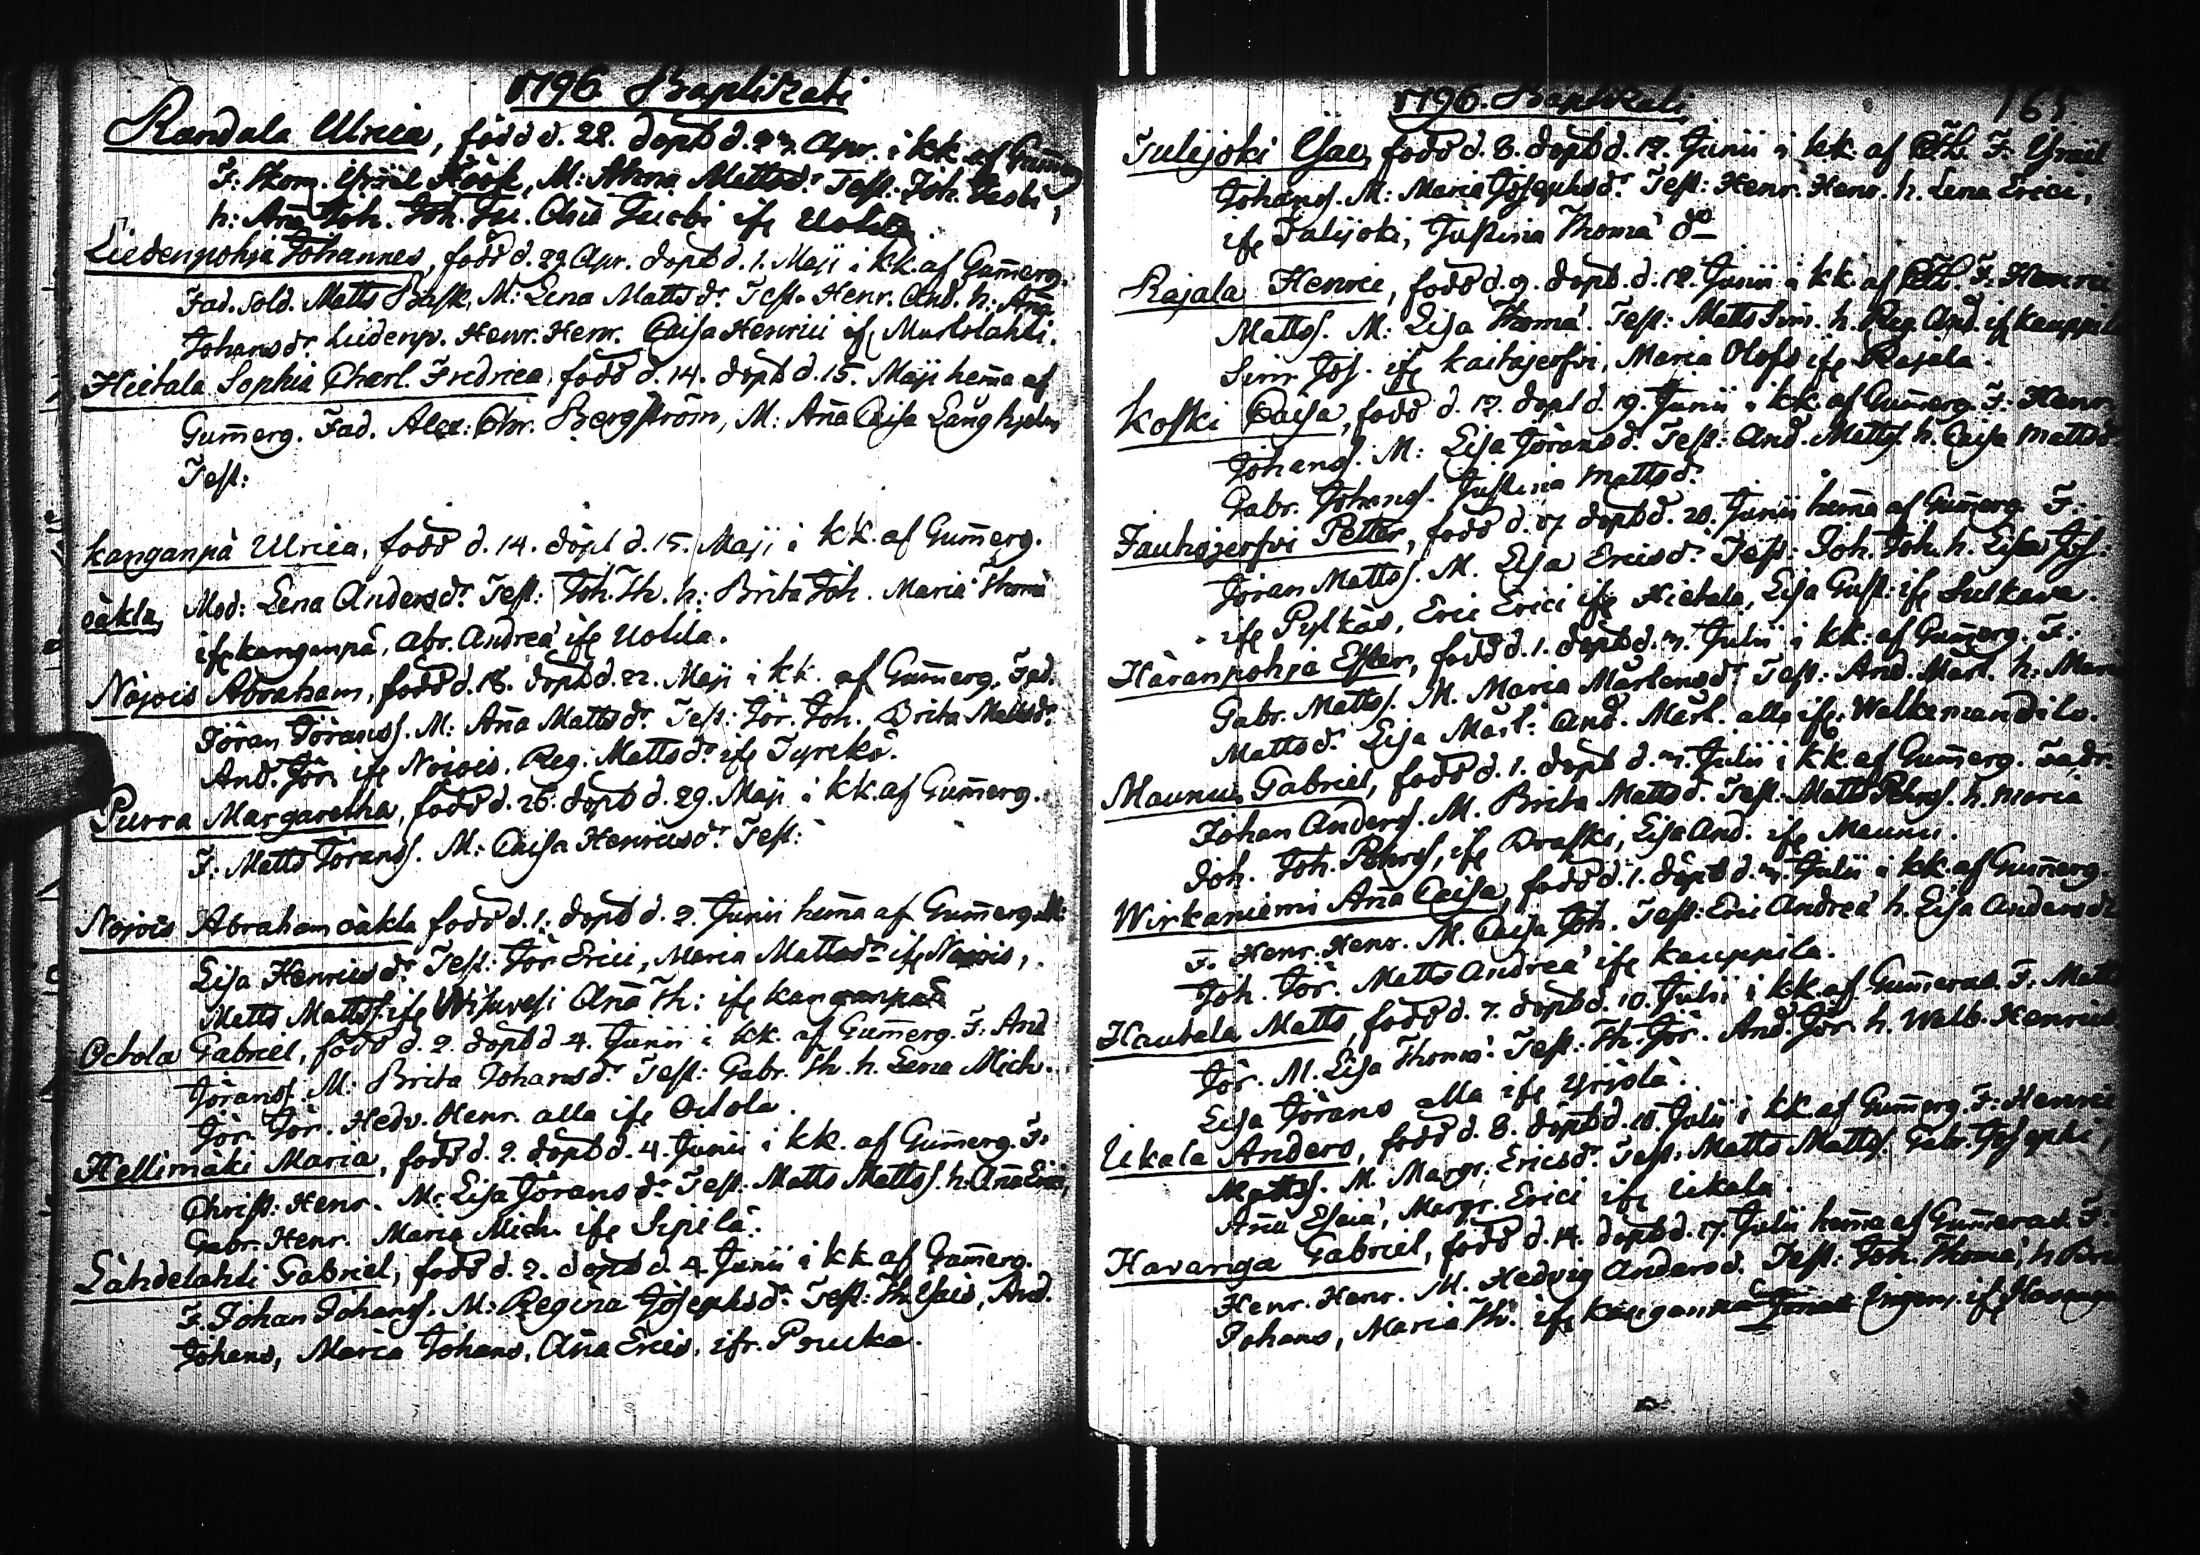 1796 Baptizati
Randala Ulrica, född d. 22. döpt d. 27. Apr. i kk. af Gummerg
F: Skom. Israel Höök, M: Anna Mattsdr Test: Joh. Jacobi,
h: Anna Joh. Joh. Jac. Caisa Jacobi ifr Uotila
Liedenpohja Johannes, född d. 29 Apr. döpt d. 1. Maji i kk. af Gummerg.
Fad. Sold. Matts Bask, M: Lena Mattsdr. Test. Henr. And. h: Anna
Johansdr. Liedenp. Henr. Henr. Caisa Henrici ifr Murtolahti.
Hietala Sophia Charl. Fredrica, född d. 14. döpt d. 15. Maji hemma af
Gummerg. Fad. Alex: Chr. Bergström, M: Anna Caisa Långhjelm
Test:
Kanganpä Ulrica, född d. 14. döpt d. 15. Maji i kk. af Gummerg.
oäkta Mod: Lena Andersdr. Test: Joh. Th. h: Brita Joh. Maria Thomæ
ifr Kanganpä, Abr. Andreæ ifr Uotila.
Nojois Abraham, född d. 18. döpt d. 22. Maji i kk. af Gummerg. Fad.
Jöran Joranss. M: Anna Mattsdr. Test: Jör. Joh. Brita Mattsdr.
And. Jör. ifr Noiois. Reg. Mattsdr ifr Tyrckö.
Purra Margaretha, född d. 26. döpt d. 29. Maji i kk. af Gummerg.
F: Matts Joranss. M: Caisa Henricsdr. Test:
Nojois Abraham oäkta född d. 1. döpt d. 2. Junii hemma af Gummerg. M:
Lisa Henricsdr. Test: Jör Erici, Maria Mattsdr ifr Nojois,
Matts Mattss. ifr Wisuvesi Anna Th: ifr Kanganpää
Ochola Gabriel, född d. 2. döpt d. 4. Junii i kk. af Gummerg. F: And
Jöranss. M: Brita Johansdr. Test: Gabr. Th. h. Lena Mich.
Jör. Jör. Hedv. Henr. alla ifr Ochola.
Hellimäki Maria, född d. 2. döpt d. 4. Junii i kk. af Gummerg. F:
Christ: Henr. M: Lisa Jöransdr. Test. Matts Mattss. h. Anna Erici,
Gabr. Henr. Maria Mich. ifr Sipilä.
Lähdelahti Gabriel, född d. 2. döpt d. 4. Junii i kk. af Gummerg.
F. Johan Johanss. M: Regina Josephsdr. Test: Th. Isais, And.
Johans, Maria Johans, Anna Erics. ifr. Poucka.
1796. Baptizati 165.
Julijoki Isac, född d. 8. döpt d. 12. Junii i kk. af F. Israel
Johanss. M: Maria Josephsdr. Test: Henr. Henr. h. Lena Erici,
ifr Julijoki, Justina Thomæ do
Rajala Henric, född d. 9. döpt d. 12. Junii i kk. af F: Henric
Mattss. M: Lisa Thomæ. Test: Matts Sim. h. Reg. And. ifr Kauppila
Sim. Jos. ifr Kaitajerfvi, Maria Olofs ifr Rajala.
Koski Caisa, född d. 12. döpt d. 19. Junii i kk. af Gummerg. F. Henr
Johanss. M: Lisa Jöransdr. Test: And. Mattss. h. Caisa Mattsdr
Gabr. Johanss. Justina Mattsdr.
Jauhojerfvi Petter, född d. 17 döpt d. 20. Junii hemma af Gummerg. F:
Jöran Mattss. M. Lisa Ericsdr. Test: Joh. Joh. h. Lisa Jos:
ifr Pylkäs, Eric Erici ifr Hietala, Lisa Gust: ifr Sulkava.
Häranpohja Ester, född d. 1. döpt d. 3. Julii i kk. af Gummerg. F.
Gabr. Mattss. M. Maria Mårtensdr. Test: And. Mårt. h: Maria
Mattsdr. Lisa Mårt: And. Mårt. alla ifr Walkemandila.
Maunus Gabriel, född d. 1. döpt d. 3. Julii i kk. af Gummerg. Fadr.
Johan Anderss. M. Brita Mattsd. Test. Matts Pehrss. h. Maria
Joh. Joh. Pehrss, ifr Braski, Lisa And. ifr Maunu.
Wirkaniemi Anna Caisa, född d. 1. döpt d. 3. Julii i kk. af Gummerg.
F. Henr. Henr. M. Caisa Joh. Test: Eric Andreæ h. Lisa Andersdr
Joh. Jör. Matts Andreæ ifr Kauppila.
Hautala Matts, född d. 7. döpt d. 10. Julii i kk. af Gummerus. F. Matts
Jör. M. Lisa Thomæ. Test: Th. Jör. And. Jör. h. Walb. Henrics
Lisa Jörans alla ifr Yrjölä.
Ukala Anders, född d. 8. döpt d. 10. Julii i kk. af Gummerg. F: Henric
Mattss. M. Margr. Ericsdr. Test: Matts Mattss. Gabr. Josephi,
Anna Esaiæ, Margr. Erici ifr Ukala.
Havanga Gabriel, född d. 14. döpt d. 17. Julii hemma af Gummerus. F:
Henr. Henr. M. Hedvig Andersd. Test: Joh. Thomæ, h Brita
Johans, Maria Th. ifr Kanganpä